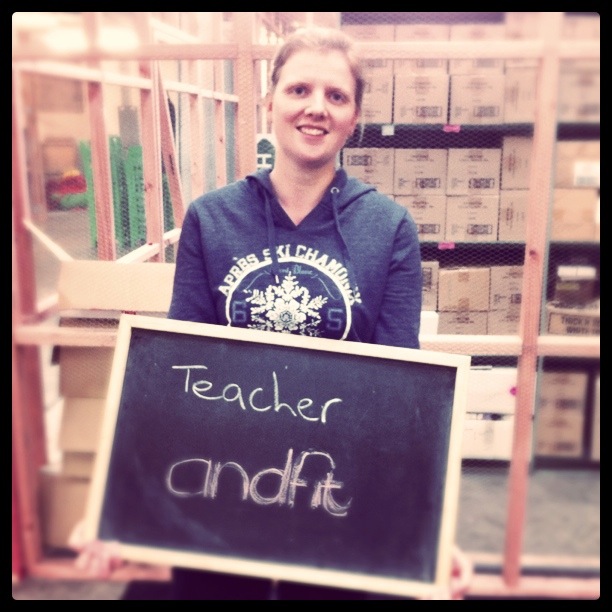 APRÈS SKI CHAMONIX
6 5
Teacher
andfit